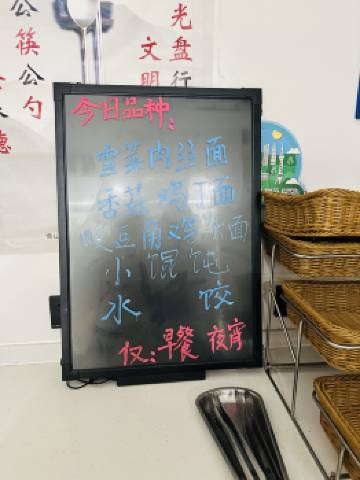 今日品种：
雪菜肉丝面
香菇鸡丁面
豇豆角鸡杂面
小馄饨
水饺
仅：早餐 夜宵
公筷公勺
光盘行
文明
德